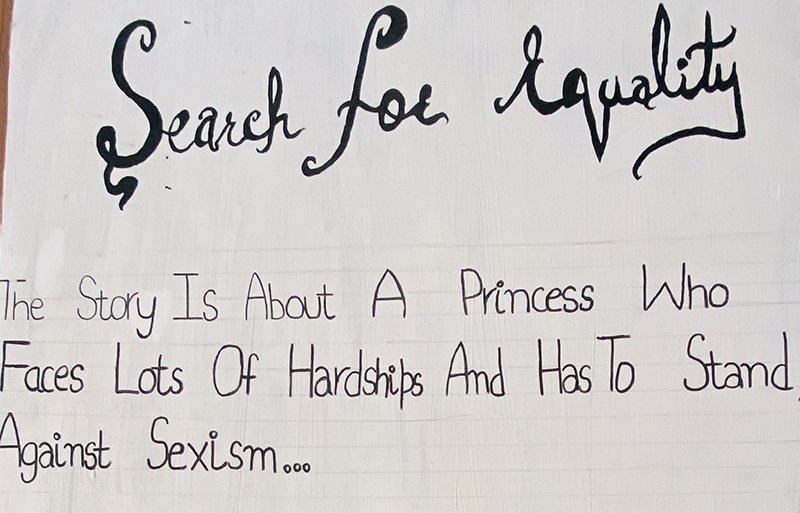 Search for Equality
The Story Is About A Princess Who
Faces Lots Of Hardships And Has To Stand
Against Sexism...